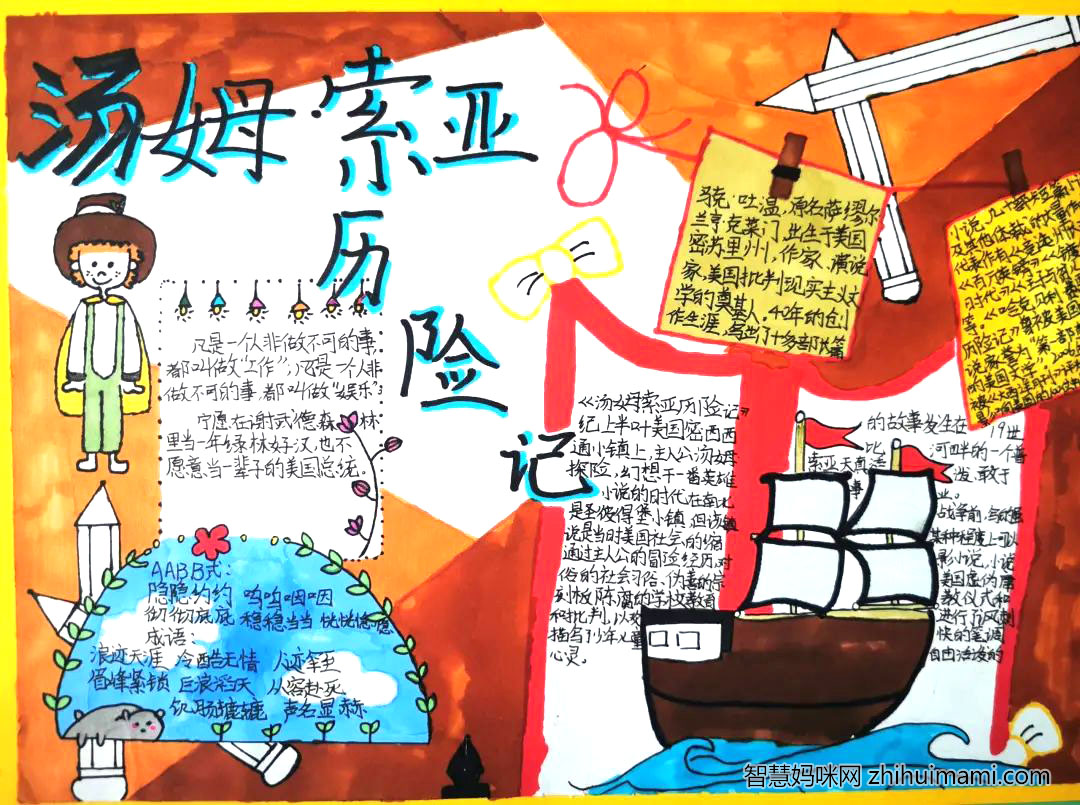 汤姆·索亚
历
险
记
凡是一个人非做不可的事,
都叫做“工作”;凡是一个人非
做不可的事,都叫做“娱乐”
宁愿在谢武德森 林
里当一年绿林好汉,也不
愿意当一辈子的美国总统。
AABB式:
隐隐约约 呜呜咽咽
彻彻底底 稳稳当当 恍恍惚惚
成语:
浪迹天涯 冷酷无情 人迹罕至
眉峰紧锁 巨浪滔天 从容赴死
饥肠辘辘 声名显赫
马克·吐温,原名萨缪尔
兰亨克莱门,出生于美国
密苏里州,作家、演说
家,美国批判现实主义文
学的奠基人。42年的创
作生涯,写出了十多部长篇
小说,几十部短篇小
及其他体裁的大量作
代表作有
等。
《汤姆索亚历险记》 的故事发生在 19世
纪上半叶美国密西西比 河畔的一个普
通小镇上,主人公汤姆· 索亚天真活泼,敢于
探险,幻想干一番英雄 事业。
小说的时代在南北 战争前,写的虽
是圣彼得堡小镇,但该镇 某种程度上可以
说是当时美国社会的缩 影小说,小说
通过主人公的冒险经历,对 美国虚伪庸
俗的社会习俗、伪善的宗 教仪式和
刻板陈腐的学校教育 进行了讽刺
和批判,以欢 快的笔调
描写了少年儿童 自由活泼的
心灵。
智慧妈咪网 zhihuimami.com